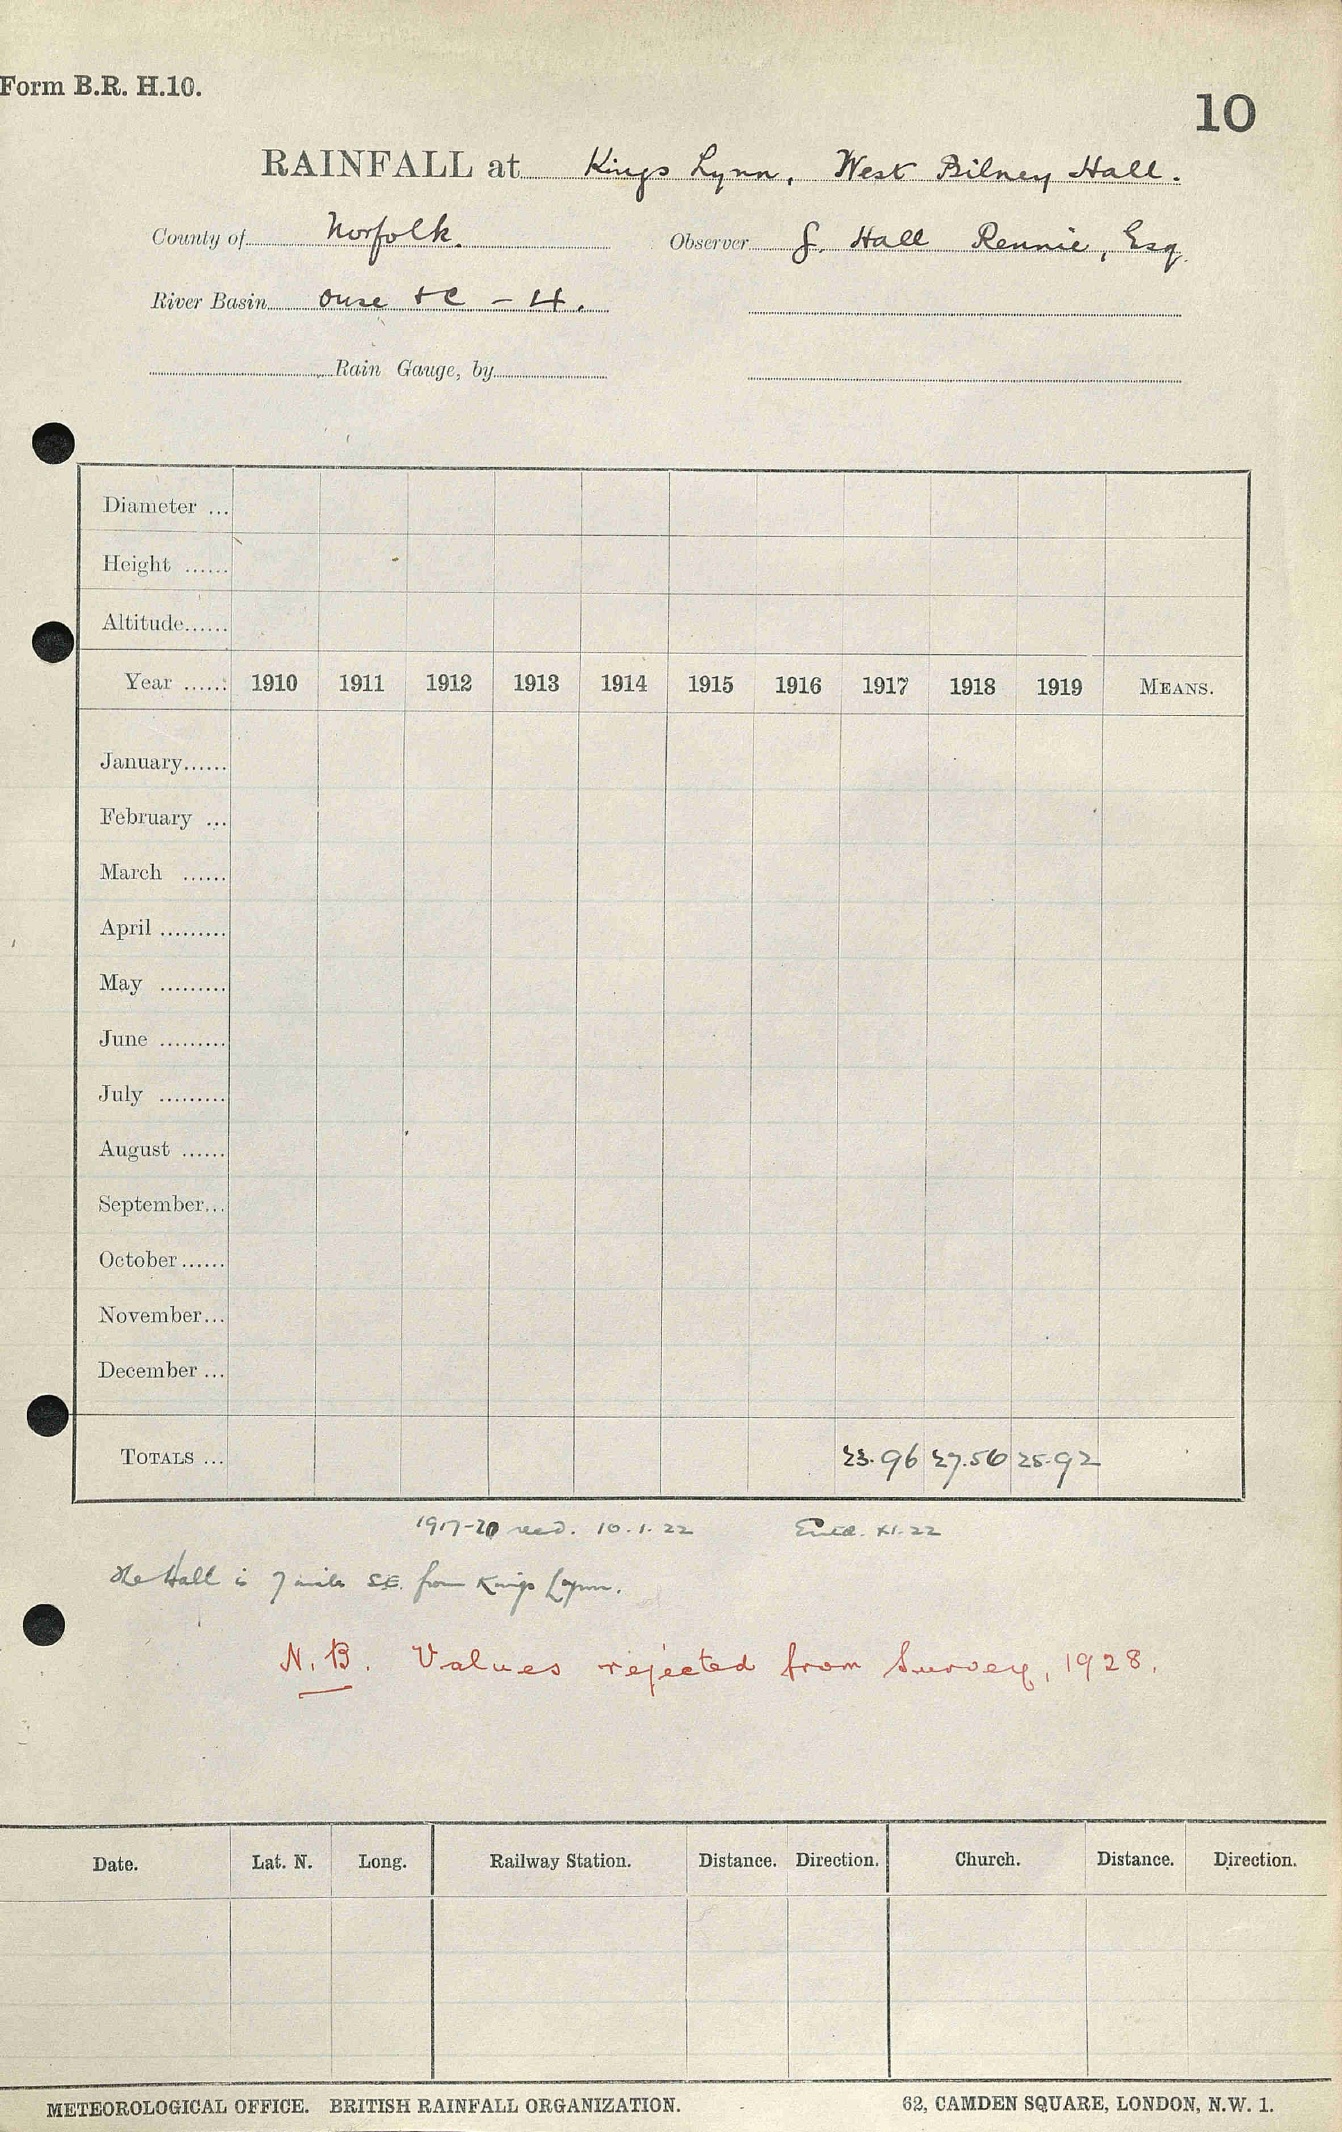 Form B.R. H.10.
10
RAINFALL at Kings Lynn, West Bilney Hall.
County of Norfolk. Observer J. Hall Rennie, Esq.
River Basin Ouse &c - 4.
Rain Gauge, by
Diameter ...
Height ......
Altitude......
Year ...... 1910 1911 1912 1913 1914 1915 1916 1917 1918 1919 MEANS.
January......
February ...
March ......
April .........
May .........
June .........
July .........
August ......
September...
October......
November...
December ...
TOTALS ... 23.96 27.56 25.92
1917-20 recd. 10.1.22 Entd. XI.22
The Hall is 7 miles S.E. from Kings Lynn.
N.B. Values rejected from Survey, 1928.
Date. Lat. N. Long. Railway Station. Distance. Direction. Church. Distance. Direction.
METEOROLOGICAL OFFICE. BRITISH RAINFALL ORGANIZATION. 62, CAMDEN SQUARE, LONDON, N.W. 1.